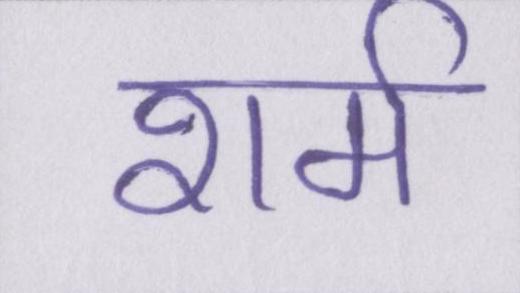 शर्म